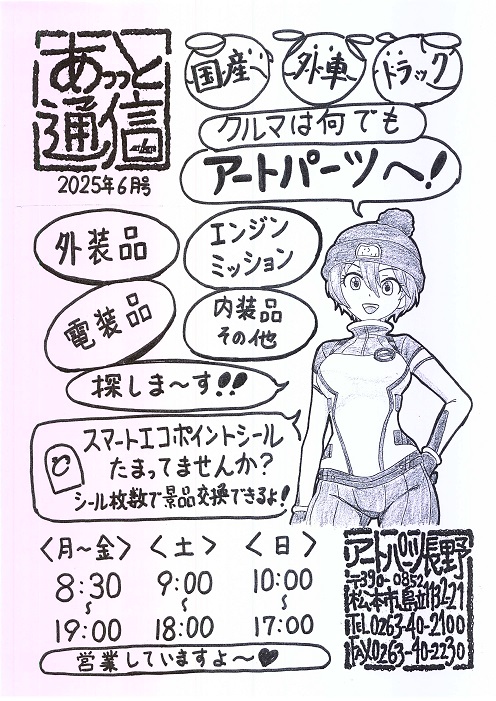 あっっと
通信
2025年6月号
国産
外車
トラック
クルマは何でも
アートパーツへ!
外装品
エンジン
ミッション
電装品
内装品
その他
探しま〜す!!
スマートエコポイントシール
たまってませんか?
シール枚数で景品交換できるよ!
<月〜金>
8:30
〜
19:00
<土>
9:00
〜
18:00
<日>
10:00
〜
17:00
営業していますよ〜♥
アートパーツ長野
〒390-0852
TEL0263-40-2100
FAX0263-40-2230